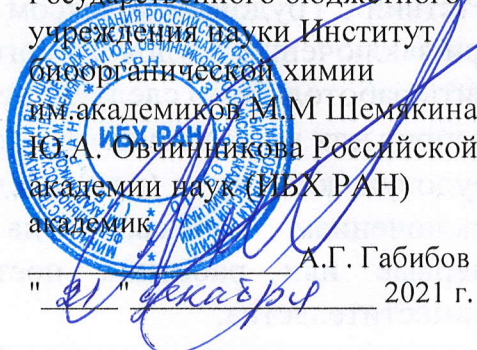 Государственного бюджетного
учреждения науки Институт
биоорганической химии
им.академиков М.М Шемякина
Ю.А. Овчинникова Российской
академии наук (ИБХ РАН)
академик
А.Г. Габибов
"21" декабря 2021 г.
ИБХ РАН